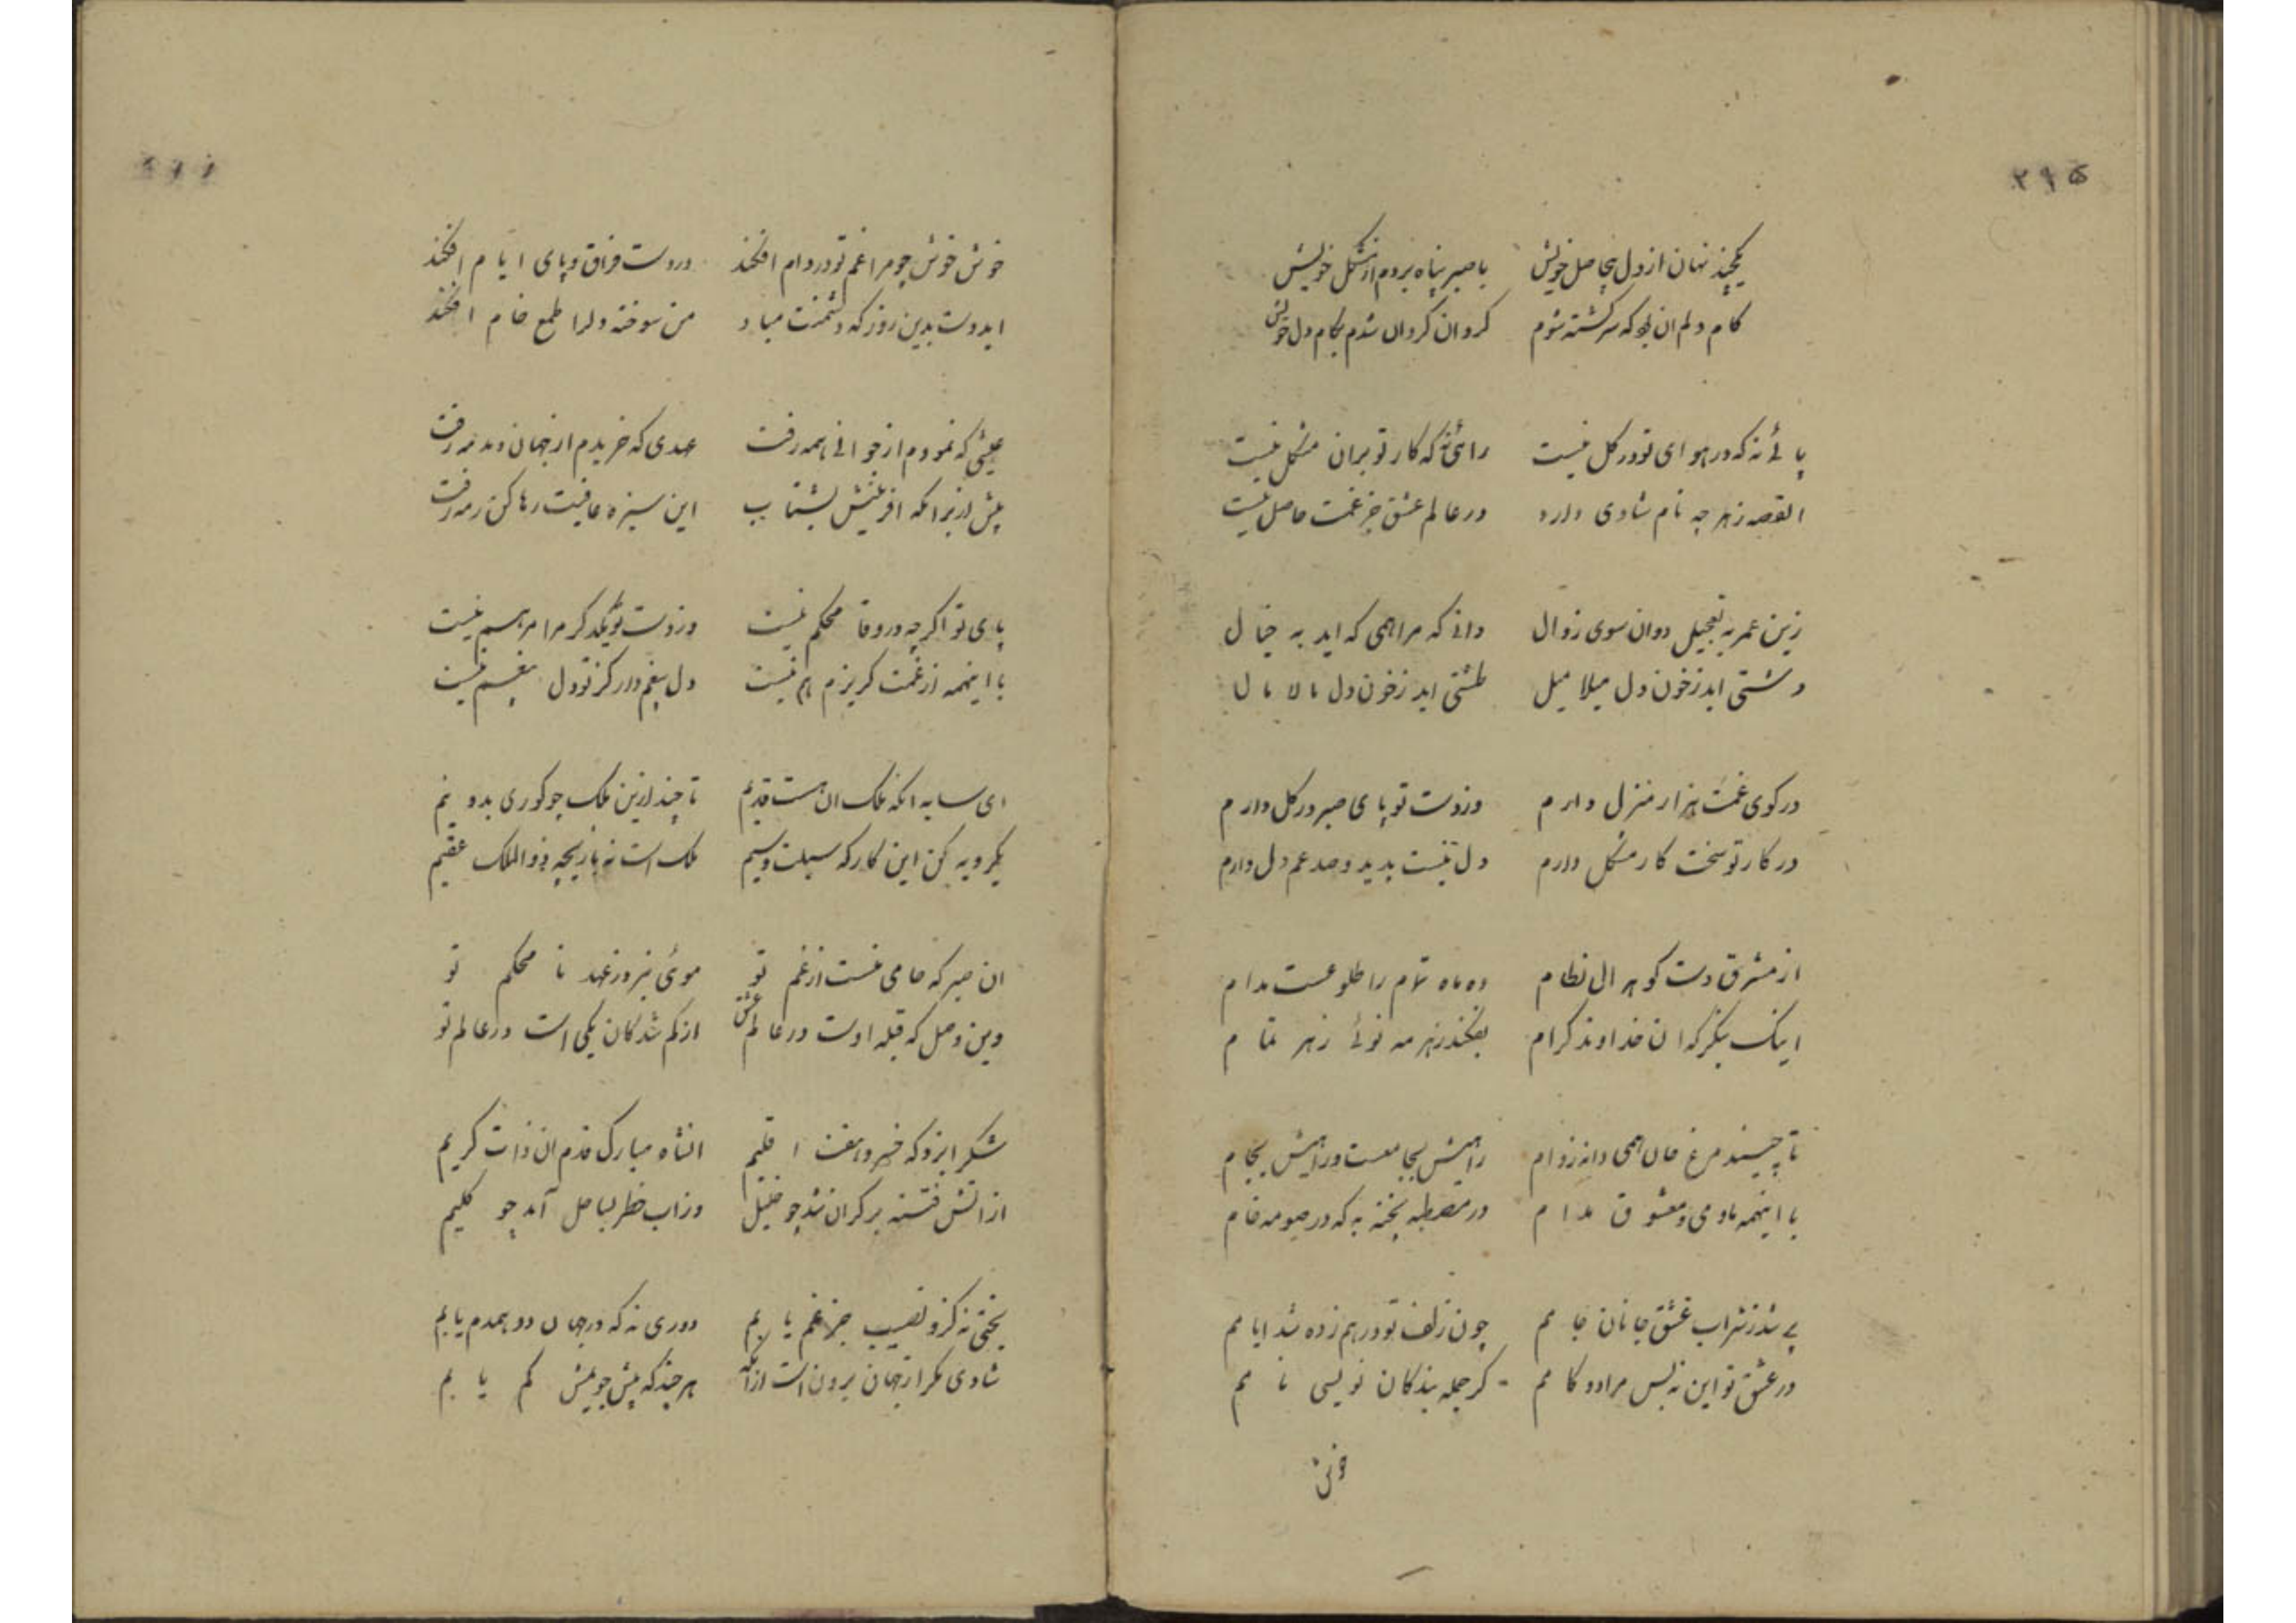 ۲۹۵
یکچند نهان از دل بیحاصل خویش با صبر پناه بردم از مشکل خویش
کام دلم ان بود که سرکشته شوم کردان کردان شدم بکام دل خویش
پائی نه که در هوای تو در کل نیست رائی نه که کار تو بران مشکل نیست
القصه ز هر چه نام شادی دارد در عالم عشق جز غمت حاصل نیست
زین عمر به تعجیل دوان سوی زوال دانی که مرا همی که اید به خیال
دشتی اید ز خون دل میلامیل طشتی اید ز خون دل مالامال
در کوی غمت هزار منزل دارم وز دست تو پای صبر در کل دارم
در کار تو سخت کار مشکل دارم دل نیست بدید و صد غم دل دارم
از مشرق دست کوهر ال نظام ده ماه تمام را طلوعست مدام
اینک بنکر که ان خداوند کرام بفکند ز هر مه نوئی ز هر تمام
تا چیند مرغ جان همی دانه ز دام راهیش بجامست و راهیش بجام
با اینهمه ما و می و معشوق مدام در مصطبه پخته به که در صومعه خام
پی شد ز شراب عشق جانان جامم چون زلف تو درهم زده شد ایامم
در عشق تو این نه بس مراد و کامم کز جمله بندکان نویسی نامم
خوش خوش چو مرا غم تو در دام افکند در دست فراق و پای ایام افکند
ایدوست بدین روز که دشمنت مباد من سوخته دلرا طمع خام افکند
عیشی که نمودم از جوانی همه رفت عهدی که خریدم از جهان دمدمه رفت
پیش از بز انکه افرینش بشتاب این سبزه عافیت رها کن رمه رفت
پای تو اکرچه در وفا محکم نیست وز دست تو یکدکر مرا مرهم نیست
با اینهمه از غمت کریزم هم نیست دل بیغم دار کز تو دل بیغم نیست
ای سایه انکه ملک ان هست قدیم تا چند ازین ملک چو کوری بدو نیم
یکرویه کن این کار که سهلست و سیم ملک است نه بازیچه و الملک عقیم
ان صبر که حامی منست از غم تو موئی نبرد ز عهد نا محکم تو
وین وصل که قبله اوست در عالم عشق از کم شدکان یکی است در عالم تو
شکر ایزد که خسرو هفت اقلیم انشاه مبارک قدم ان ذات کریم
از اتش فتنه بر کران شد چو خلیل وز اب خطر بساحل آمد چو کلیم
بختی نه کزو نصیب جز غم یابم دوری نه که در جهان دو همدم یابم
شادی مکر از جهان برون است از انکه هر چند که بیش جویمش کم یابم